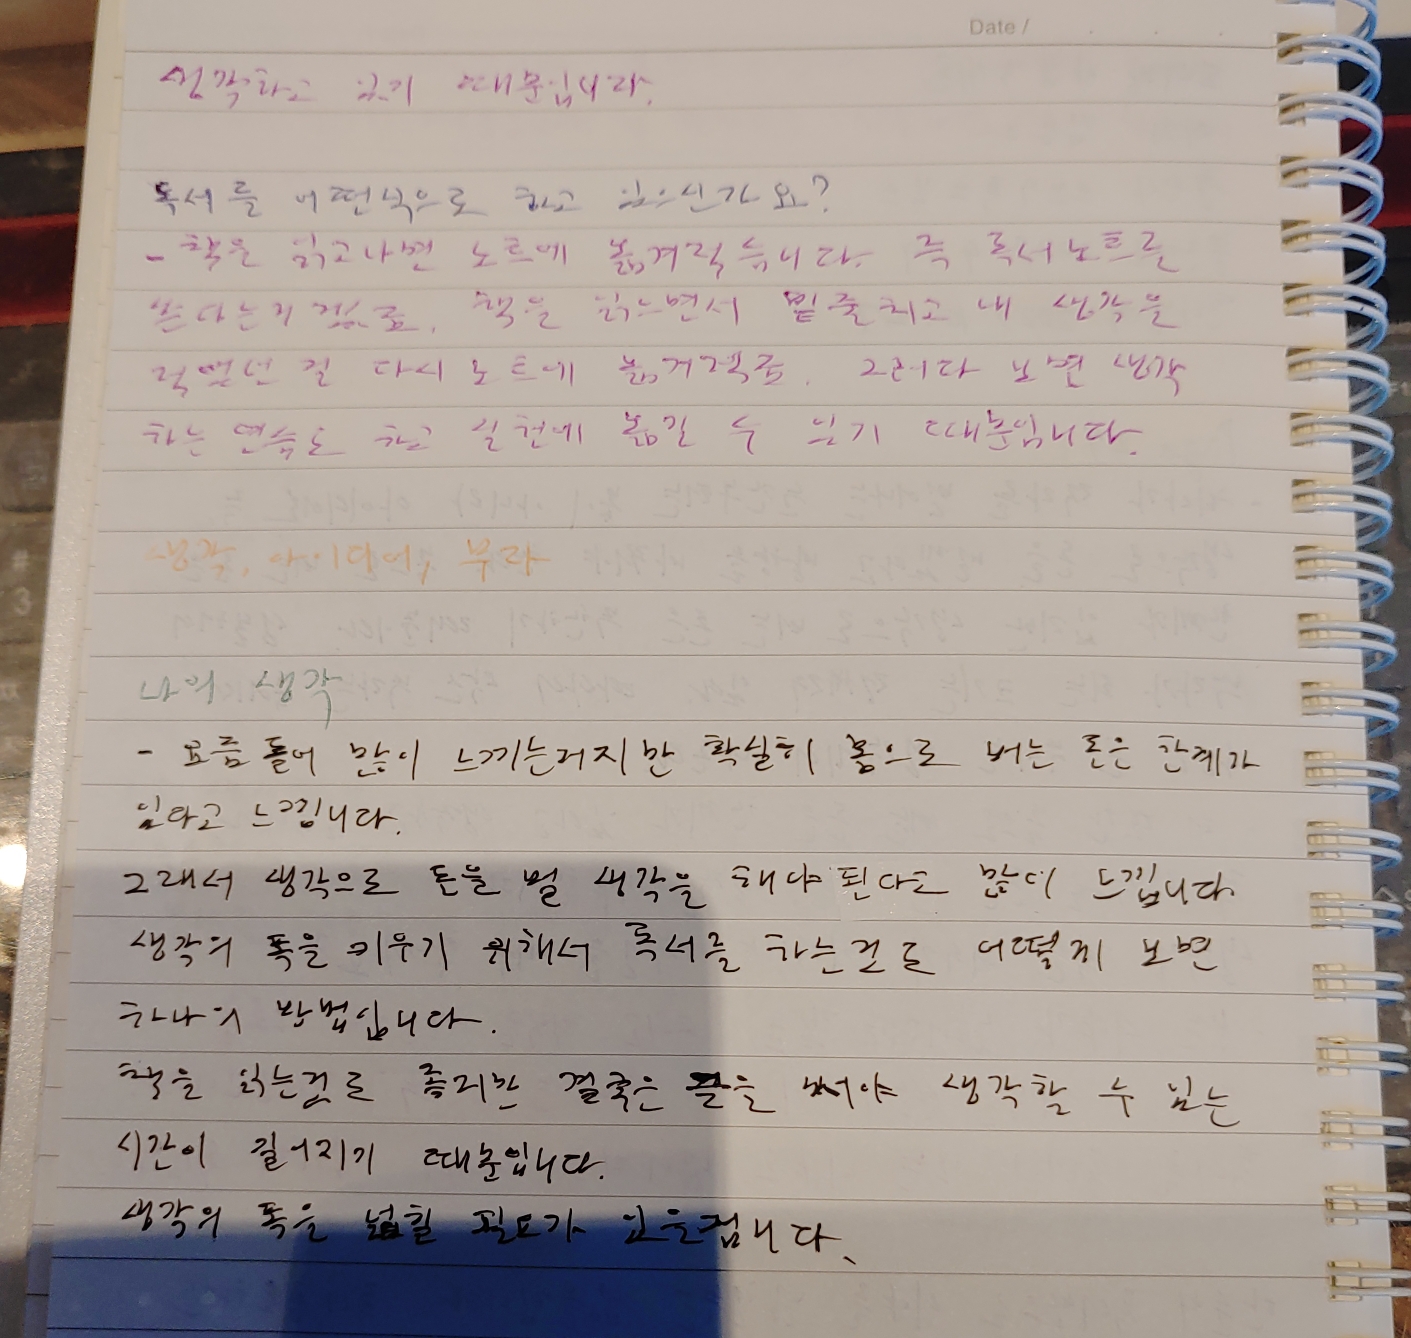 Date /
생각하고 있기 때문입니다.
독서를 어떤식으로 하고 있으신가요?
- 책을 읽고나면 노트에 옮겨적습니다. 즉 독서노트를
쓴다는거겠죠. 책을 읽으면서 밑줄치고 내 생각을
적었던 걸 다시 노트에 옮겨적죠. 그러다 보면 생각
하는 연습도 하고 실천에 옮길 수 있기 때문입니다.
생각, 아이디어, 부자
나의 생각
- 요즘들어 많이 느끼는거지만 확실히 몸으로 버는 돈은 한계가
있다고 느낍니다.
그래서 생각으로 돈을 벌 생각을 해야된다고 많이 느낍니다
생각의 폭을 키우기 위해서 독서를 하는것도 어떻게 보면
하나의 방법입니다.
책을 읽는것도 좋지만 결국은 글을 써야 생각할 수 있는
시간이 길어지기 때문입니다.
생각의 폭을 넓힐 필요가 있을겁니다.